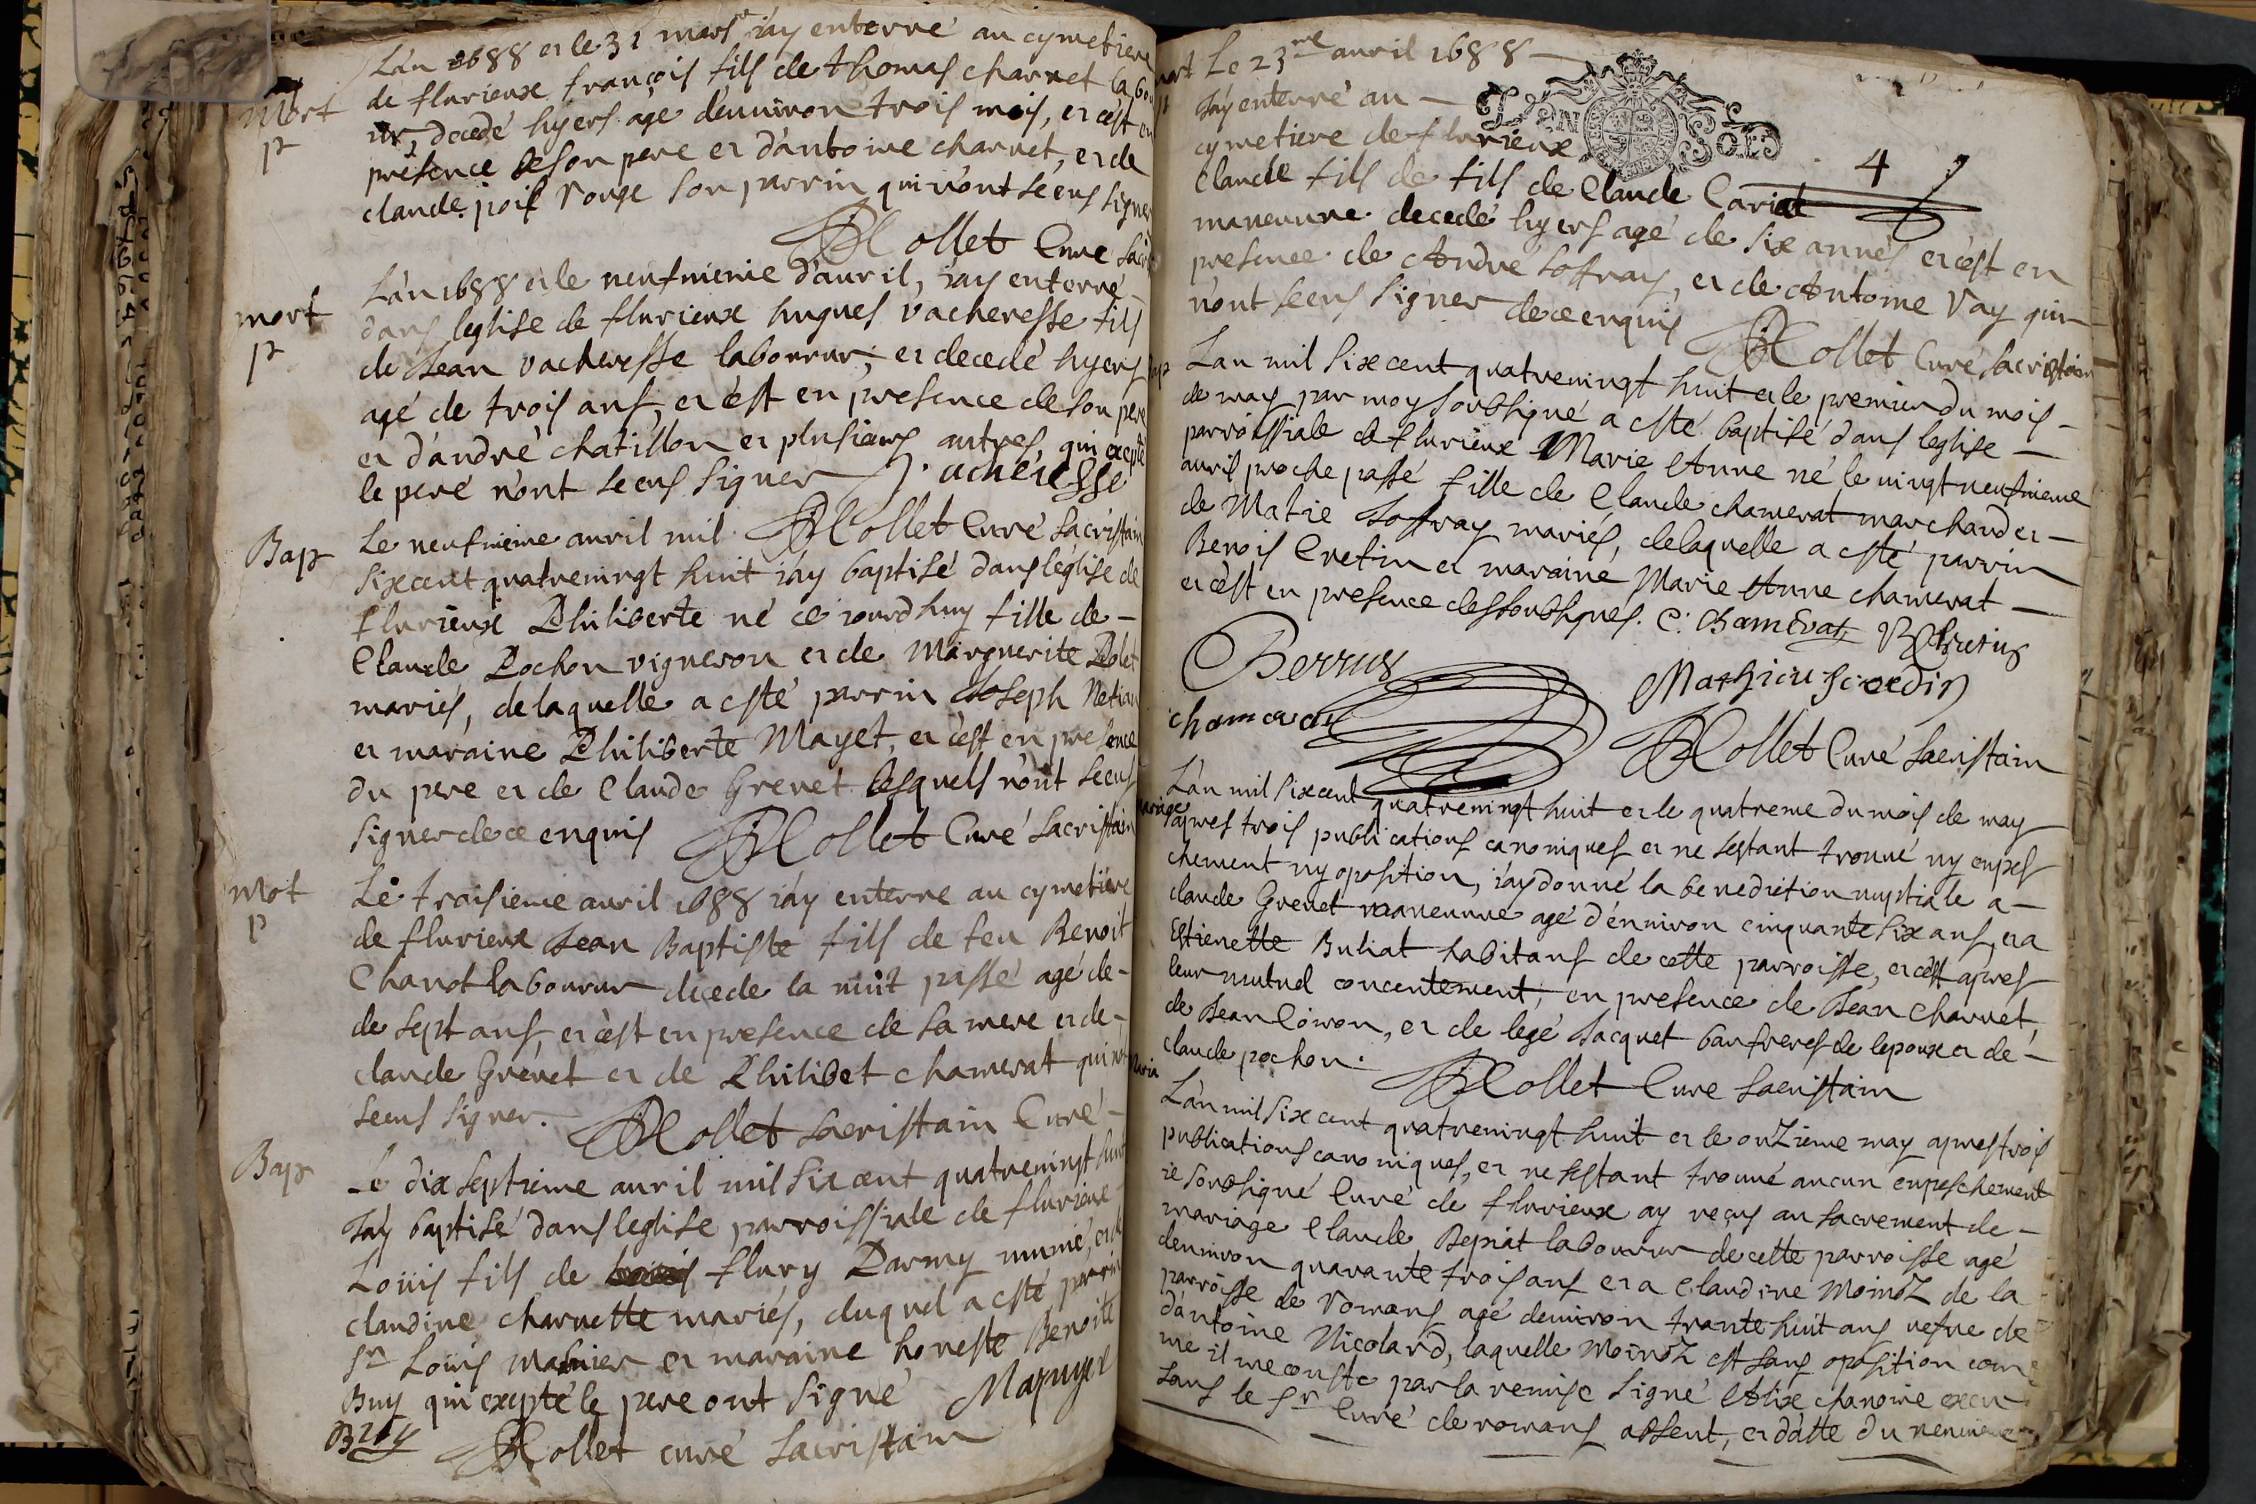 Mort
p
L'an 1688 et le 31 mars j'ay enterré au cymetiere
de flurieux françois fils de thomas charvet labou
rur, decedé hyers agé d'environ trois mois, et c'est en
presence de son pere et d'antoine charvet, et de
claude pois rouge son parrin qui n'ont sceus signer
Rollet Curé sacris
mort
p
L'an 1688 et le neufvieme d'avril, j'ay enterré
dans leglise de flurieux hugues vacheresse fils
de Jean vacheresse labourur, et decedé hyers
agé de trois ans, et c'est en presence de son pere
et d'andré chatillon et plusieurs autres, qui excepté
le pere n'ont sceus signer J. vacheresse
Rollet Curé sacristain
Bap
Le neufvieme avril mil
sixcent quatrevingt huit j'ay baptisé dans léglise de
flurieux Philiberte né ce jourd huy fille de
Claude Pochon vigneron et de Marguerite Polet
mariés, delaquelle a esté parrin Joseph
et maraine Philiberte Mayet, et c'est en presence
du pere et de Claude Grevet lesquels n'ont sceus
signer de ce enquis Rollet Curé sacristain
Mot
p
Le troisieme avril 1688 j'ay enterre au cymetiere
de flurieux Jean Baptiste fils de feu Benoit
Chanot labourur decede la nuit passé agé de
de sept ans, et c'est en presence de sa mere et de
claude Grevet et de Philibet chamerat qui
sceus signer. Rollet sacristain Curé
Bap
Le dix septieme avril mil sixcent quatrevingt huit
J'ay baptisé dans leglise parroissiale de flurieux
Loüis fils de flury Darmy munié, et de
claudine charvette mariés, duquel a esté parrin
sr Loüis et maraine honeste Benoite
Buy qui excepté le pere ont signé
Buy Rollet curé sacristain
mort Le 23me avril 1688
J'ay enterré au
cymetiere de flurieux
LYON SOLS
4
Claude fils de fils de Claude Cariat
maneuvre decedé hyers agé de six annés et c'est en
presence de André soffray, et de Antoine Vay qui
n'ont sceus signer de ce enquis Rollet Curé sacristain
Bap
Lan mil sixcent quatrevingt huit et le premier du mois
de may par moy soubsigné a esté baptisé dans leglise
parroissiale de flurieux Marie Anne né le vingt neufvieme
avril proche passé fille de Claude chamerat marchand et
de Marie soffray mariés, delaquelle a esté parrin
Benois Cretin et maraine Marie Anne chamerat
et c'est en presence des soubsignes. C. Chamerat B Cretin
Berrus
Mathieu
chamerat Rollet Curé sacristain
mariage
L'an mil sixcent quatrevingt huit et le quatreme du mois de may
apres trois publications canoniques et ne sestant trouué ny enpes
chement ny oposition, j'ay donné la benediction nuptiale a
claude Grevet maneuvre agé d'environ cinquante six ans, et a
Estienette Buliat habitans de cette parroisse, et c'est apres
leur mutuel concentement, en presence de Jean charvet,
de Jean Coiron, et de legé Jacquet baufreres de lepoux et de
claude pochon.
Rollet Curé sacristain
maria
L'an mil six cent quatrevingt huit et le onzieme may apres trois
publications canoniques, et ne sestant trouué aucun enpeschement
je soubsigné Curé de flurieux ay reçus au sacrement de
mariage Claude Repiat labourur de cette parroisse agé
denviron quarante trois ans et a Claudine Moiroz de la
parroisse de romans agé denviron trante huit ans vefve de
d'antoine Nicolard, laquelle Moiroz est sans oposition com
me il me conste par la remise signé Alix chanoine excu
sans le sr Curé de romans absent, et datte du